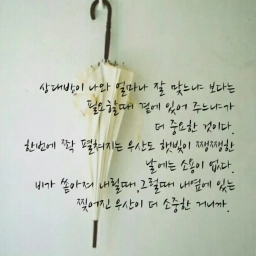 상대방이 나와 얼마나 잘 맞느냐 보다는
필요할때 곁에 있어 주느냐가
더 중요한 것이다.
한번에 쫙 펼쳐지는 우산도 햇빛이 쨍쨍한
날에는 소용이 없다.
비가 쏟아져 내릴때,그럴때 내옆에 있는
찢어진 우산이 더 소중한 거니까.